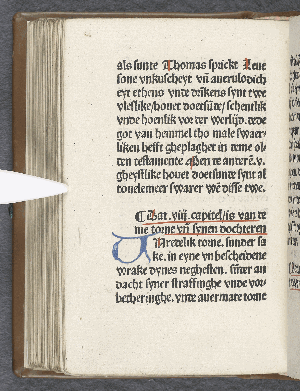 als sunte Thomas spricht Leue
sone vnkuscheyt vñ auerulodich
eyt ethens vnde drikens synt twe
vleslike houet doetsūde/ schentlik
vnde hoenlik vor der werlt/ vnde
got van hemmel tho male swaer-
liken hefft gheplaghet in deme ol-
den testamente Men de anderē.v.
gheystlike houet doetsunde synt al
to nelemeer swarer wen disse twe.
Dat .viij. capittel/ is van de
me torne vñ synen dochteren
VRedelik torne. sunder sa
ke. in eyne vnbescheidene
wrake dynes neghesten. sūner an
dacht syner straffinghe vnde vor-
betheringhe. vnde auermate torne